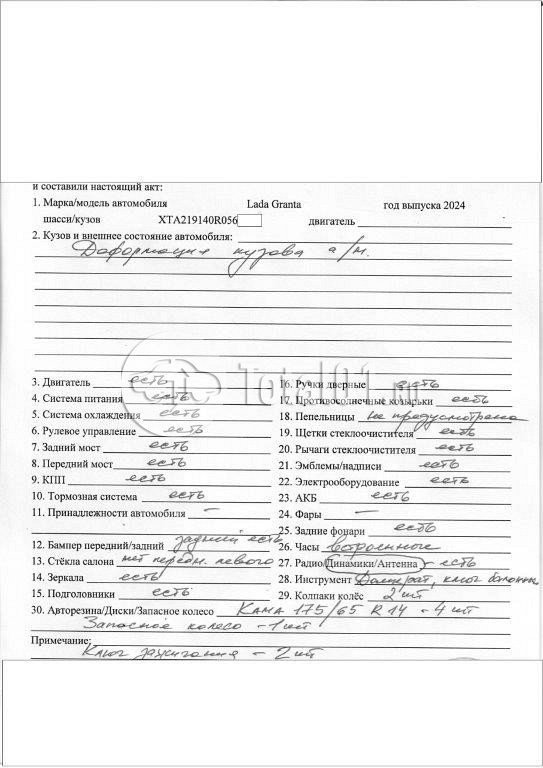 и составили настоящий акт:
1. Марка/модель автомобиля Lada Granta год выпуска 2024
шасси/кузов XTA219140R056 двигатель
2. Кузов и внешнее состояние автомобиля:
Деформация кузова а/м.
Total01.ru
3. Двигатель есть
4. Система питания есть
5. Система охлаждения есть
6. Рулевое управление есть
7. Задний мост есть
8. Передний мост есть
9. КПП есть
10. Тормозная система есть
11. Принадлежности автомобиля –
12. Бампер передний/задний задний есть
13. Стёкла салона нет передн. левого
14. Зеркала есть
15. Подголовники есть
16. Ручки дверные есть
17. Противосолнечные козырьки есть
18. Пепельницы не предусмотрена
19. Щетки стеклоочистителя есть
20. Рычаги стеклоочистителя есть
21. Эмблемы/надписи есть
22. Электрооборудование есть
23. АКБ есть
24. Фары –
25. Задние фонари есть
26. Часы встроенные
27. Радио/Динамики/Антенна – есть
28. Инструмент Домкрат, ключ балонный
29. Колпаки колёс 2 шт
30. Авторезина/Диски/Запасное колесо Кама 175/65 R14 – 4 шт
Запасное колесо – 1 шт
Примечание:
Ключ зажигания – 2 шт